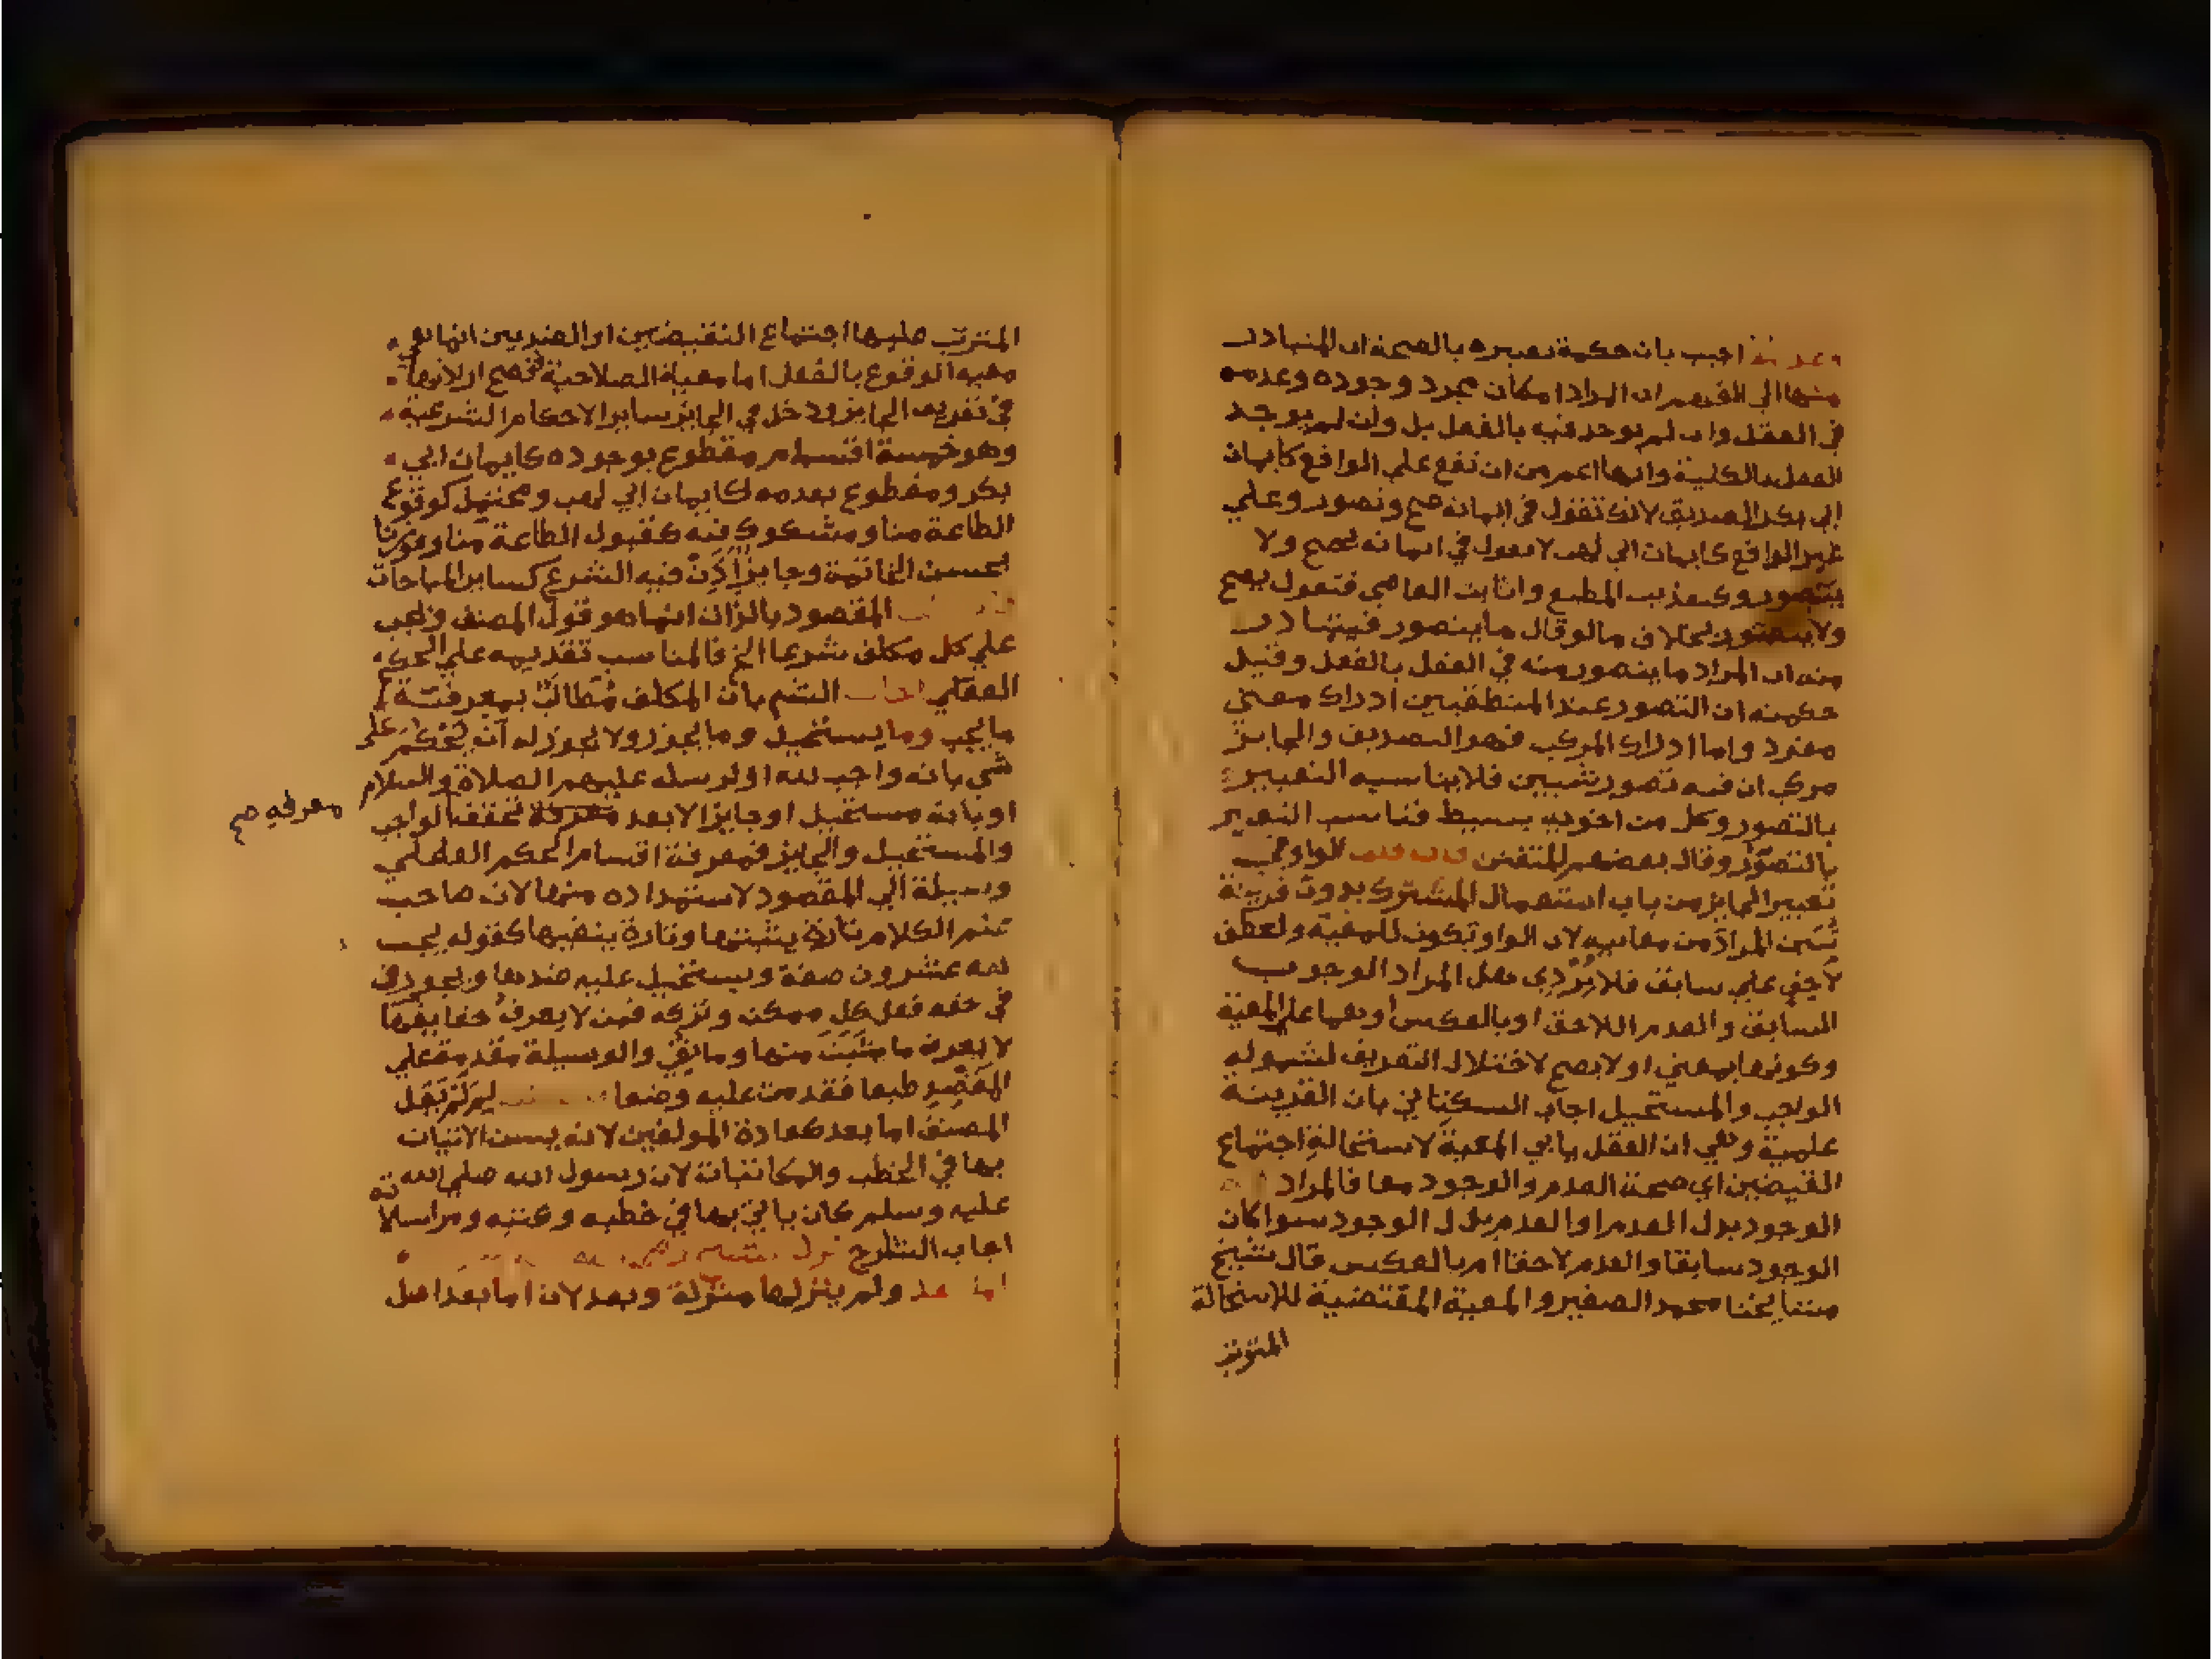 وعدمه اجيب بان حكمة تعبيره بالصحة ان المتبادر
منها الي الفهم ان المراد امكان مجرد وجوده وعدمه
في العقل وان لم يوجد فيه بالفعل بل وان لم يوجد
العقل بالكلية وانها اعم من ان تقع علي الواقع كايمان
ابي بكر الصديق لانك تقول في ايمانه صح وتصور وعلي
غير الواقع كايمان ابي لهب لانك تقول في ايمانه يصح ولا
يتصور وكتعذيب المطيع واثابت العاصي فتقول يصح
ولا يتصور بخلاف ما لو قال ما يتصور فيتبادر
منه ان المراد ما يتصور منه في العقل بالفعل وقيل
حكمته ان التصور عند المنطقيين ادراك معني
مفرد واما ادراك المركب فهو التصديق والجايز
مركب ان فيه تصور شيين فلا يناسبه التعبير
بالتصور وكل من اخويه بسيط فناسب التعبير
بالتصور وقال بعضهم للتفنن الواو في
تعبير الجايز من باب استعمال المشترك بدون قرينة
تبين المراد من معانيه لان الواو تكون للمعية ولعطف
لاحق علي سابق فلا يدري هل المراد الوجوب
السابق والعدم اللاحق او بالعكس او هما علي المعية
وكونها بمعني او لا يصح لاختلال التعريف لشموله
الواجب والمستحيل اجاب السكتاني بان القرينة
علمية وهي ان العقل يابي المعية لاستحالة اجتماع
النقيضين اي صحة العدم والوجود معا فالمراد
الوجود بدل العدم او العدم بدل الوجود سوا كان
الوجود سابقا والعدم لاحقا ام بالعكس قال شيخ
مشايخنا محمد الصغير والمعية المقتضية للاستحالة
المترتب
المترتب عليها اجتماع النقيضين او الضدين انما هي
معية الوقوع بالفعل اما معية الصلاحية فتصح ارادتها
في تعريف الجايز ودخل في الجايز ساير الاحكام الشرعية
وهو خمسة اقسام مقطوع بوجوده كايمان ابي
بكر ومقطوع بعدمه كايمان ابي لهب ومحتمل كوقوع
الطاعة منا ومشكوك فيه كقبول الطاعة منا وفوزنا
بحسن الخاتمة وجايز أَذِنَ فيه الشرع كساير المباحات
المقصود بالذات انما هو قول المصنف ويجب
علي كل مكلف شرعا الخ فالمناسب تقديمه علي الحكم
العقلي اجاب الشم بان المكلف مُطالَبٌ بمعرفة
ما يجب وما يستحيل وما يجوز ولا يجوز له ان يحكم علي
شي بانه واجب لله او لرسله عليهم الصلاة والسلام
او بانه مستحيل او جايز الا بعد معرفة حقيقة الواجب
معرفه صح
والمستحيل والجايز فمعرفة اقسام الحكم العقلي
وسيلة الي المقصود لاستمداده منها لان صاحب
علم الكلام تارة يثبتها وتارة ينفيها كقوله يجب
لله عشرون صفة ويستحيل عليه ضدها ويجوز
في حقه فعل كل ممكن وتركه فمن لا يعرف حقايقها
لا يعرف ما يثبت منها وما نفي والوسيلة مقدمة علي
المقصِد طبعا فقدمت عليه وضعا لِمَ لَمْ يَقُل
المصنف اما بعد كعادة المولفين لانه يسن الاتيان
بها في الخطب والمكاتبات لان رسول الله صلي الله
عليه وسلم كان ياتي بها في خطبه وكتبه ومراسلاته
اجاب الشارح
اما بعد ولم ينزلها منزلة وبعد لان اما بعد اصل